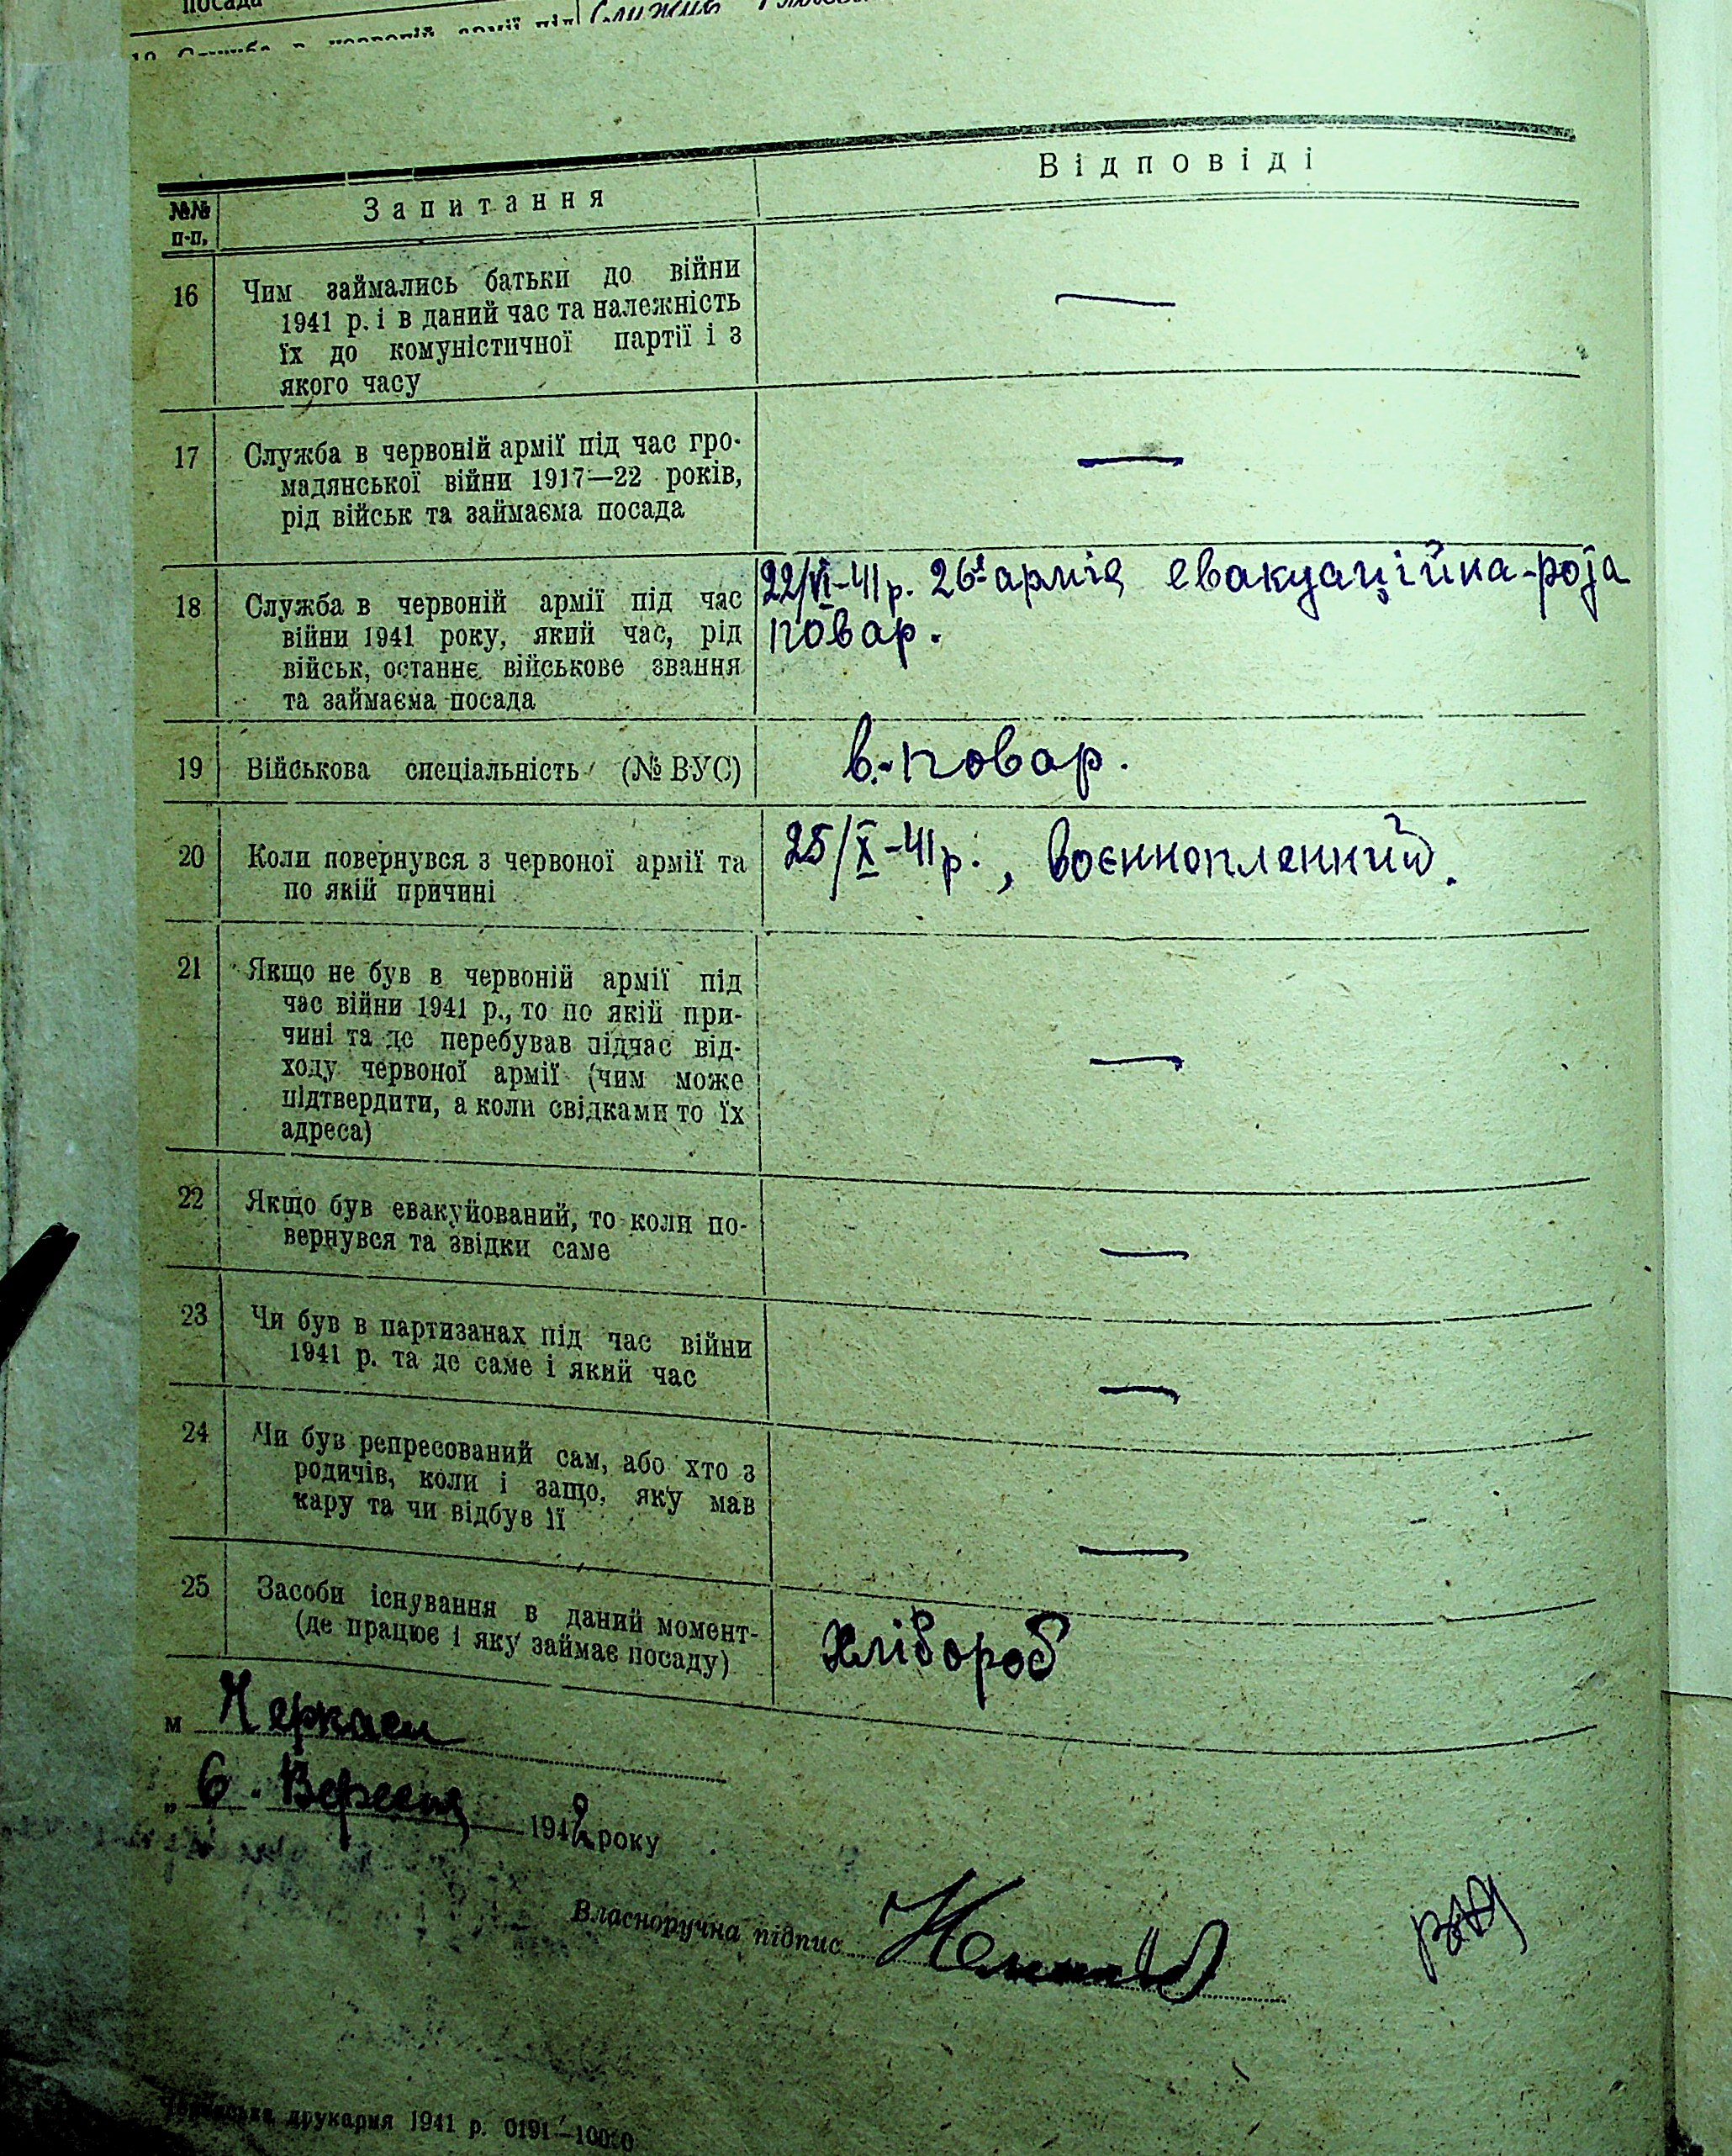 посада
Служив
В і д п о в і д і
№№
п-п.
З а п и т а н н я
16 Чим займались батьки до війни —
1941 р. і в даний час та належність
їх до комуністичної партії і з
якого часу
17 Служба в червоній армії під час гро- —
мадянської війни 1917—22 років,
рід військ та займаєма посада
18 Служба в червоній армії під час
війни 1941 року, який час, рід
військ, останнє військове звання
та займаєма посада
22/VI-41р. 26а армія евакуаційна-рота
повар.
19 Військова спеціальність (№ ВУС) в.-повар.
20 Коли повернувся з червоної армії та
по якій причині
25/X-41р., воєннопленний.
21 Якщо не був в червоній армії під
час війни 1941 р., то по якій при-
чині та де перебував підчас від-
ходу червоної армії (чим може —
підтвердити, а коли свідками то їх
адреса)
22 Якщо був евакуйований, то коли по-
вернувся та звідки саме —
23 Чи був в партизанах під час війни
1941 р. та де саме і який час —
24 Чи був репресований сам, або хто з
родичів, коли і защо, яку мав
кару та чи відбув її —
25 Засоби існування в даний момент-
(де працює і яку займає посаду) Хлібороб
м Черкаси
„ 6. Вересня 1942 року
Власноручна підпис
друкарня 1941 р. 0191—10000